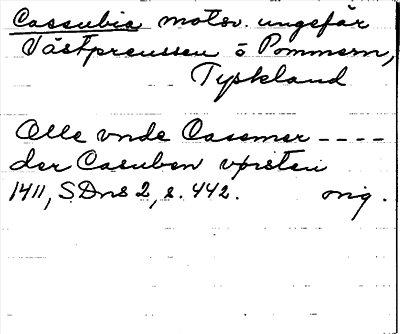 Cassubia motsv. ungefär
Västpreussen o Pommern,
Tyskland
Olle vnde Cassmer ----
der Casuben vorsten
1411, SDns 2, s. 442. orig.